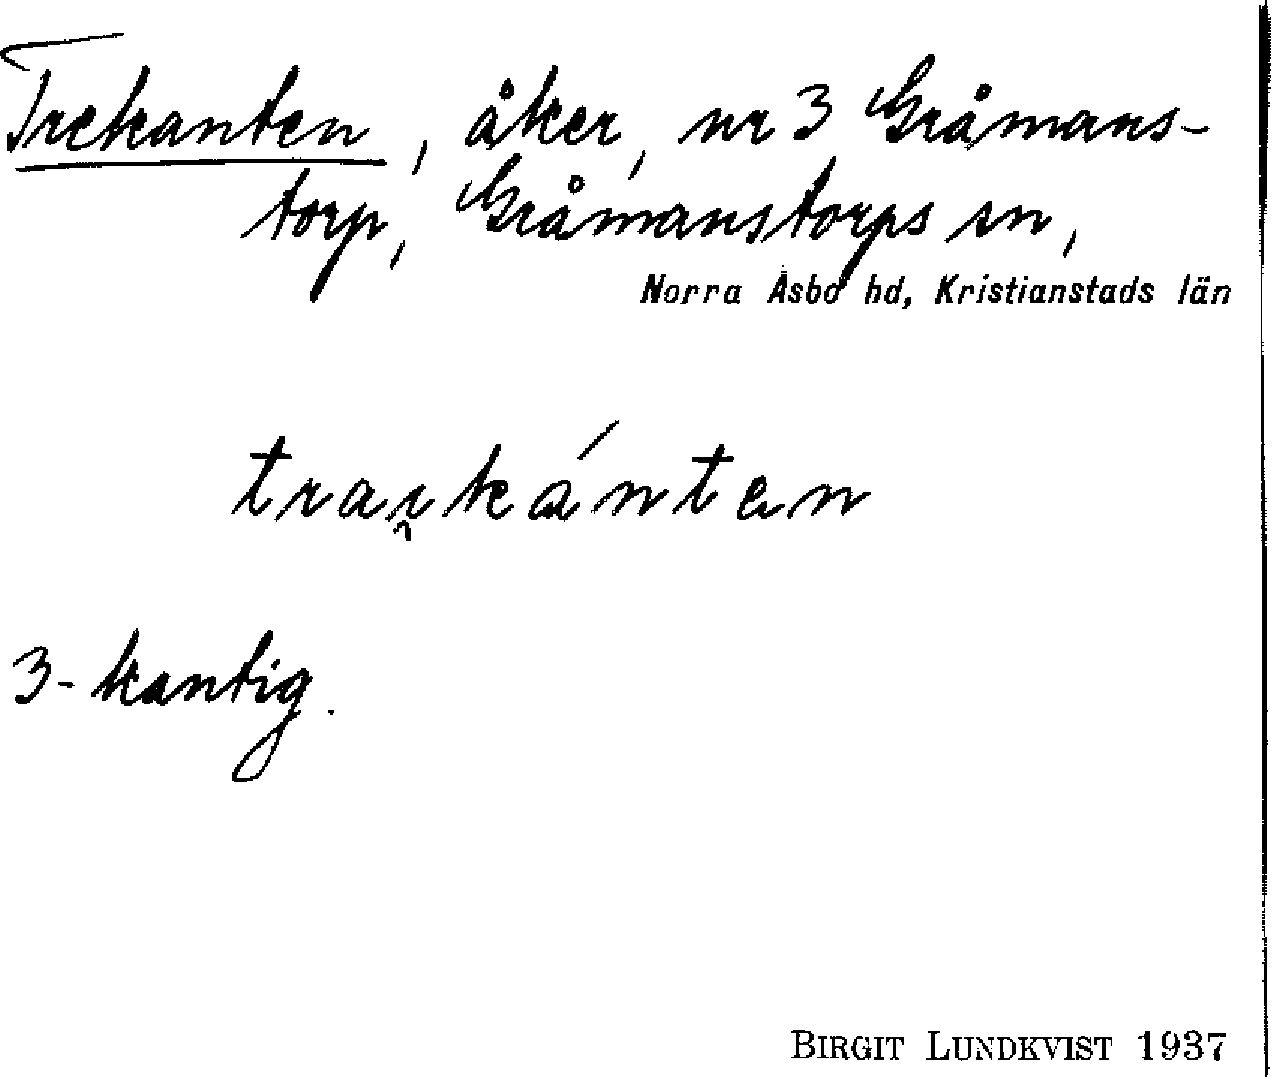 Trekanten, åker, nr 3 Gråmans-
torp, Gråmanstorps sn,
Norra Åsbo hd, Kristianstads län
3-kantig.
BIRGIT LUNDKVIST 1937